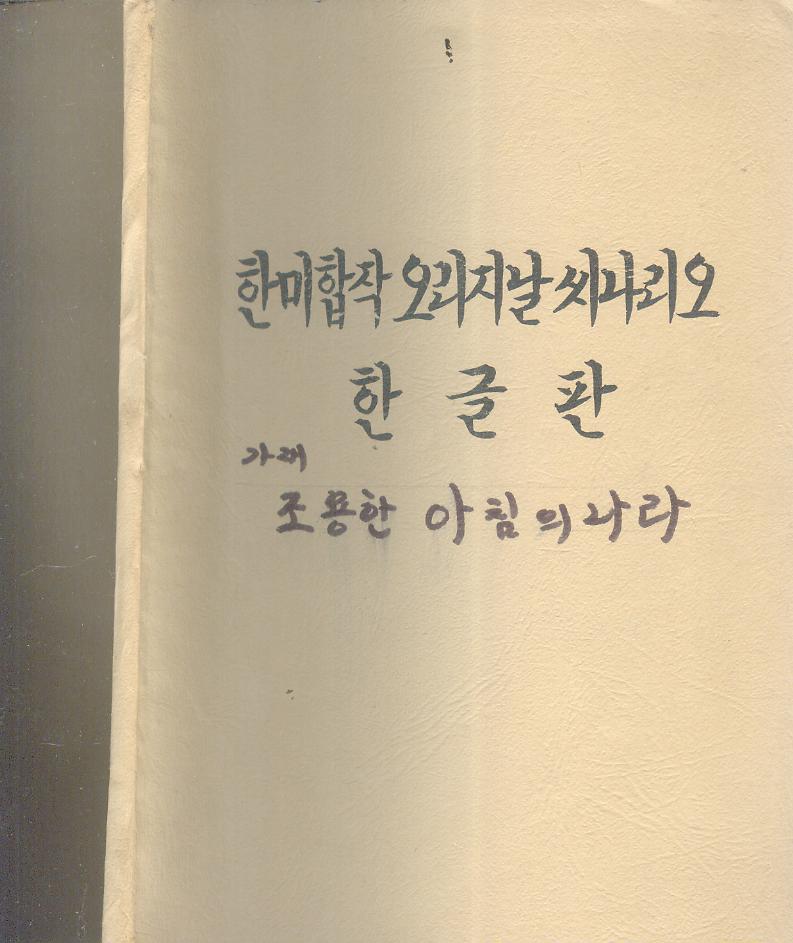 한미합작 오리지날 씨나리오
한글판
가제
조용한 아침의 나라